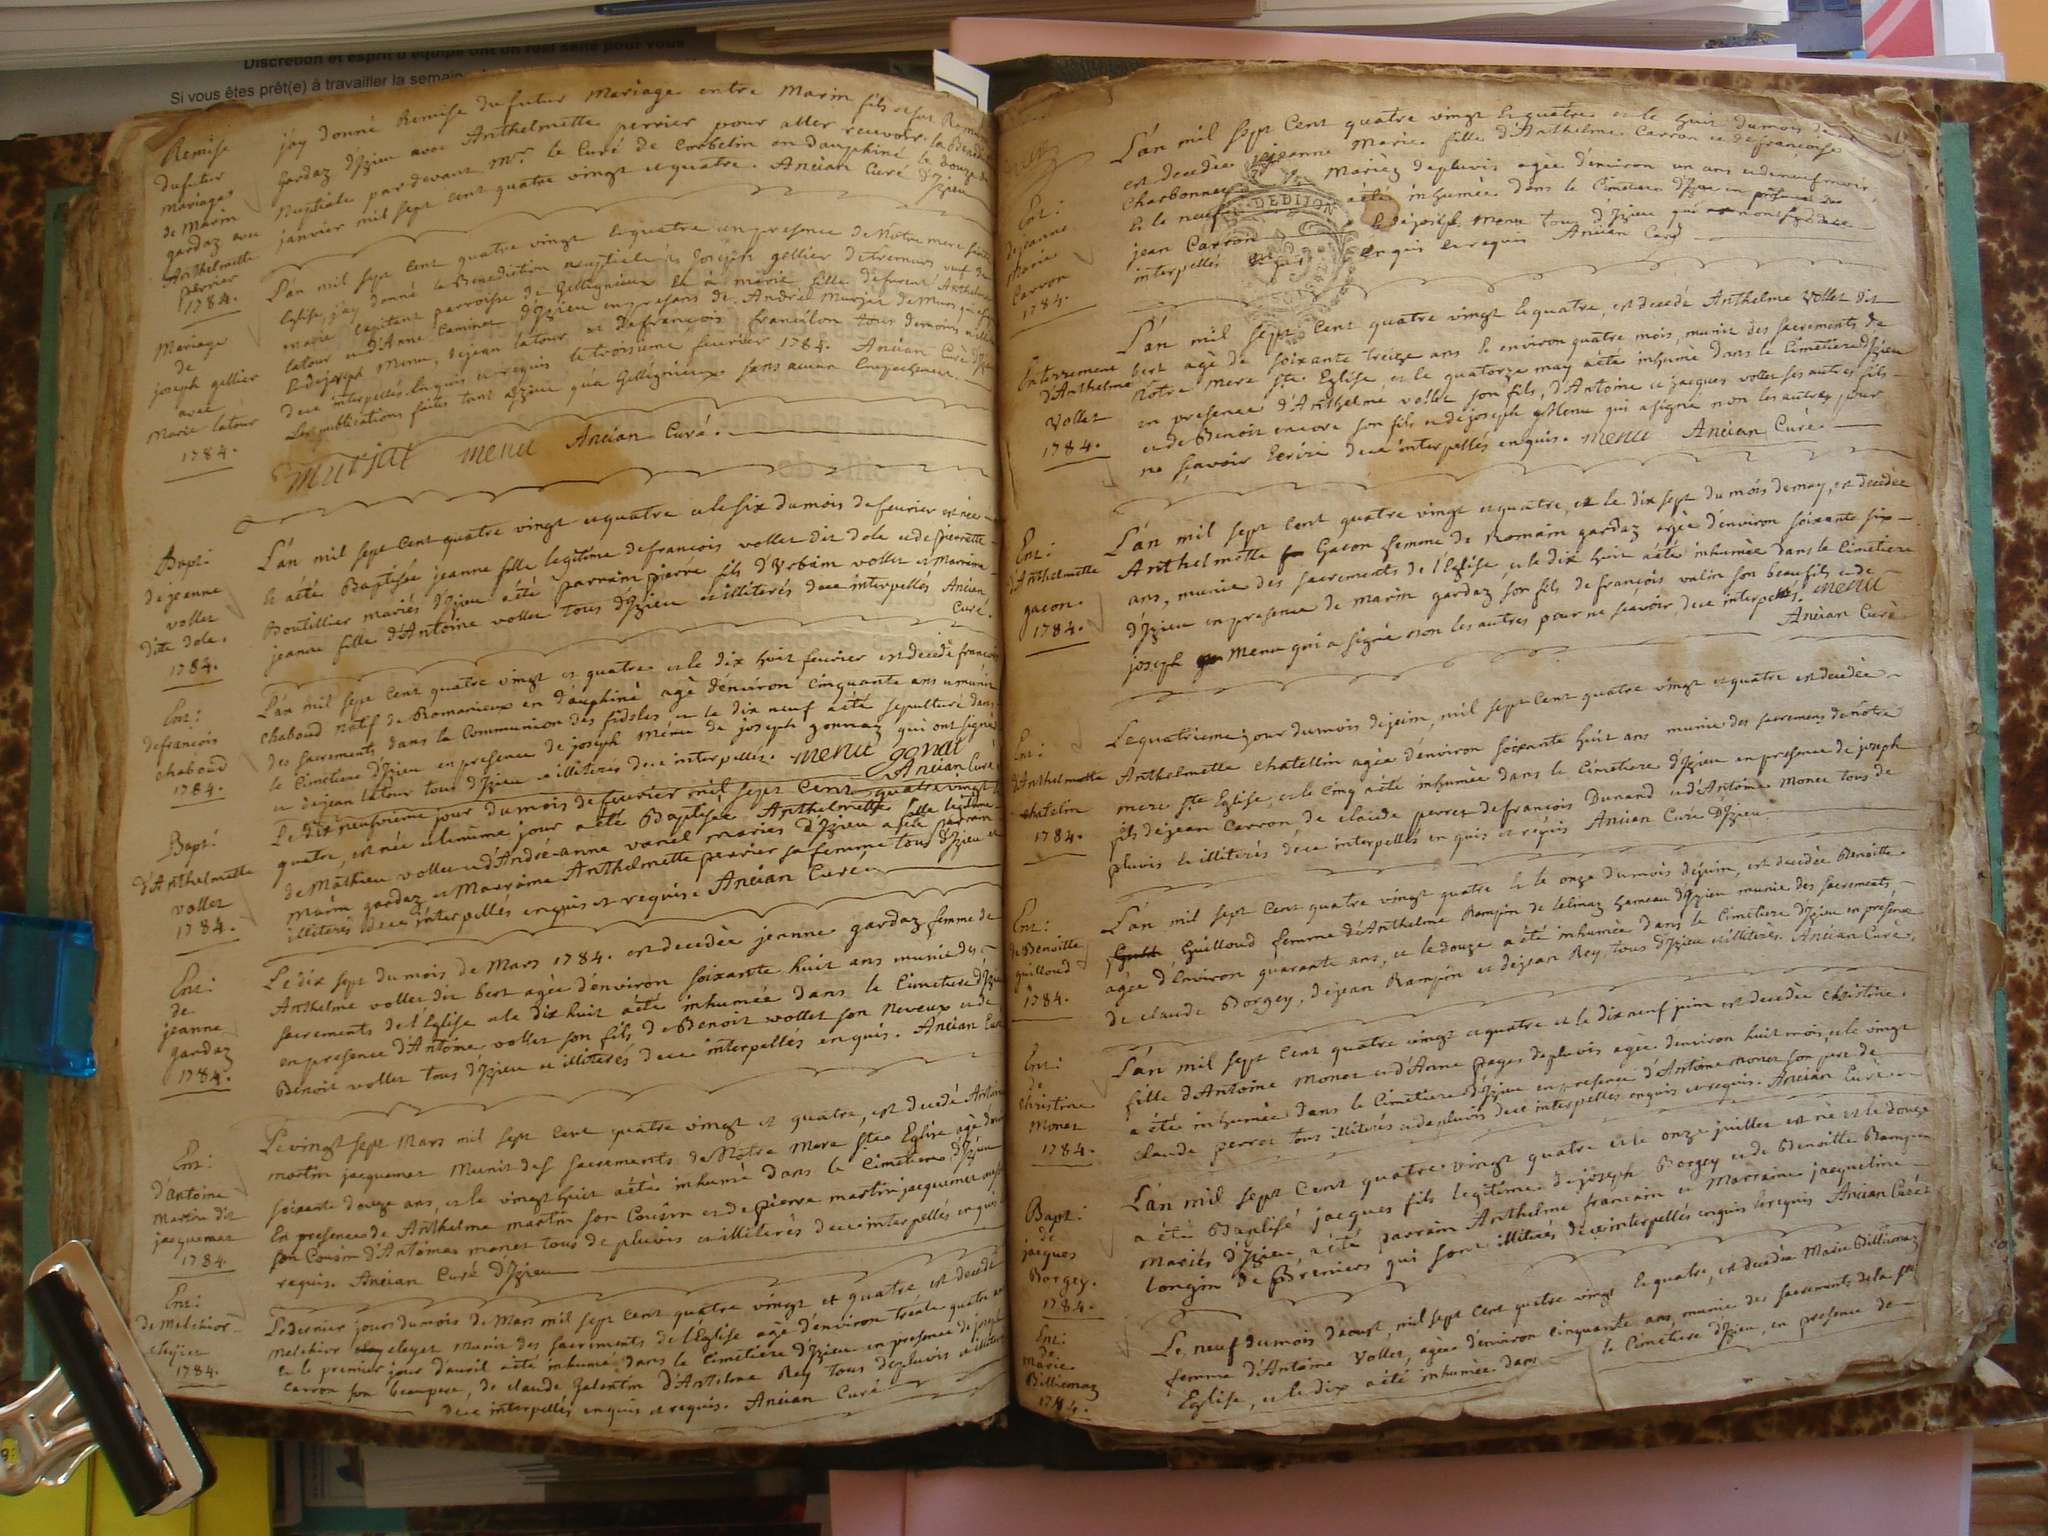 Discretion et esprit d'équipe ont un réel sens pour vous
Si vous êtes prêt(e) à travailler la semaine
Remise
du futur
mariage
de Marin
gardaz avec
Anthelmette
perrier
1784.
j'ay donné Remise du futur Mariage entre Marin fils de feu
gardaz d'Izieu avec Anthelmette perrier pour aller recevoir la
Nuptiale par devant Mr. le Curé de Corbelin en dauphiné, le douze
janvier mil sept cent quatre vingt et quatre. Ancian Curé d'Izieu
Mariage
de
joseph gellier
avec
Marie latour
1784.
L'an mil sept cent quatre vingt le quatre en presence de Notre mere sainte
Eglise, j'ay donné la Benediction nuptiale à joseph gellier veuf de
marie Capitant parroisse de Gelignieux et à marie fille de
latour et d'Anne Caminet d'Izieu en presence de André Murjat de Murs
et de joseph Menu, de jean latour et de françois francillon tous
de ce interpellés Enquis et requis le troisieme feuvrier 1784. Ancian Curé d'Izieu
Les publications faites tant d'Izieu qu'a Gelignieux sans aucun Empechement.
Murjat menu Ancian Curé.
Bapt:
de jeanne
vollet
dite dole.
1784.
L'an mil sept Cent quatre vingt et quatre et le six du mois de feuvrier est née
et a été Baptisée jeanne fille legitime de françois vollet dit dole et de pierrette
Boutillier mariés d'Izieu a été parrain pierre fils d'Urbain vollet et Marraine
jeanne fille d'Antoine vollet tous d'Izieu et illiterés de ce interpellés Ancian
Curé.
Ent:
de françois
chaboud
1784.
L'an mil sept Cent quatre vingt et quatre et le dix huit feuvrier est decedé françois
chaboud natif de Romanieux en dauphiné agé d'environ cinquante ans et munit
des sacrements dans la Communion des fideles et le dix neuf a été sepulturé dans
le Cimetiere d'Izieu en presence de joseph Menu de joseph gonnay qui ont signé
et de jean latour tous d'Izieu et illiteres de ce interpellés. menu gonai
Ancian Curé
Bapt:
d'Anthelmette
vollet
1784.
Le dix neuvieme jour du mois de feuvrier mil sept Cent quatre vingt et
quatre, est née et le même jour a été Baptisée Anthelmette fille legitime
de Mathieu vollet et d'André-anne variel mariés d'Izieu a été parrain
Marin gardaz et Marraine Anthelmette perrier sa femme tous d'Izieu et
illiterés de ce interpellés enquis et requis. Ancian Curé.
Ent:
de
jeanne
gardaz
1784.
Le dix sept du mois de Mars 1784. est decedée jeanne gardaz femme de
Anthelme vollet dit bert agée d'environ soixante huit ans munie des
sacrements de l'Eglise et le dix huit a été inhumée dans le Cimetiere d'Izieu
en presence d'Antoine vollet son fils de Benoit vollet son Neveux et de
Benoit vollet tous d'Izieu et illiterés de ce interpellés enquis. Ancian Curé
Ent:
d'Antoine
Martin dit
jacquemet
1784.
Le vingt sept Mars mil sept Cent quatre vingt et quatre, est decedé Antoine
martin jacquemet Munit des sacrements de Notre Mere Ste Eglise agé d'environ
soixante douze ans, et le vingt huit a été inhumé dans le Cimetiere d'Izieu
En presence de Anthelme martin son Cousin et de pierre martin jacquemet aussi
son Cousin d'Antoine monet tous de pluvis et illiterés de ce interpellés enquis
requis. Ancian Curé d'Izieu
Ent:
de Melchior
eleyet
1784.
Le dernier jour du mois de Mars mil sept Cent quatre vingt et quatre est decedé
melchior eleyet Munit des sacrements de l'Eglise agé d'environ trente quatre
et le premier jour d'avril a été inhumé dans le Cimetiere d'Izieu en presence de joseph
Carron son beaupere, de claude galentin d'Antelme Rey tous de pluvis et illiterés
de ce interpellés enquis et requis. Ancian Curé
Ent:
de jeanne
Marie
Carron
1784.
DE DIJON
L'an mil sept Cent quatre vingt et quatre et le huit du mois de
est decedée jeanne Marie fille d'Anthelme Carron et de françoise
Charbonnet Mariéz de pluvis agée d'environ un ans et de neuf mois
et le neuf a été inhumée dans le Cimetiere d'Izieu en présence de
jean Carron et de joseph menu tous d'Izieu qui
interpellés enquis et requis Ancian Curé
Enterrement
d'Anthelme
Vollet
1784.
L'an mil sept Cent quatre vingt le quatre, est decedé Anthelme Vollet dit
bert agé de soixante treize ans et environ quatre mois, munit des sacrements de
Notre Mere Ste Eglise, et le quatorze may a été inhumé dans le Cimetiere d'Izieu
en presence d'Anthelme vollet son fils, d'Antoine et jacques vollet ses autres fils
et de Benoit encore son fils et de joseph Menu qui a signé non les autres pour
ne sçavoir Ecrire de ce interpellés enquis. menu Ancian Curé
Ent:
d'Anthelmette
gacon.
1784.
L'an mil sept Cent quatre vingt et quatre, et le dix sept du mois de may, est decedée
Anthelmette Gacon femme de Romain gardaz agée d'environ soixante six
ans, munie des sacrements de l'Eglise, et le dix huit a été inhumée dans le Cimetiere
d'Izieu en presence de marin gardaz son fils de françois valin son beau fils et de
joseph Menu qui a signé non les autres pour ne sçavoir, de ce interpellés. menu
Ancian Curé
Ent:
d'Anthelmette
chatelin
1784.
Le quatrieme jour du mois de juin, mil sept Cent quatre vingt et quatre est decedée
Anthelmette chatellin agée d'environ soixante huit ans munie des sacremens de Nôtre
mere Ste Eglise, et le Cinq a été inhumée dans le Cimetiere d'Izieu en presence de joseph
fils de jean Carron, de claude perret de françois Dunand et d'Antoine Monet tous de
pluvis et illiterés de ce interpellés enquis et requis Ancian Curé d'Izieu.
Ent:
de Benoitte
guilloud
1784.
L'an mil sept Cent quatre vingt quatre et le onze du mois de juin, est decedée Benoitte
Guilloud femme d'Anthelme Ramjon de Lelinaz hameau d'Izieu munie des sacrements,
agée d'Environ quarante ans, et le douze a été inhumée dans le Cimetiere d'Izieu en presence
de claude Borgey, de jean Ramjon et de jean Rey, tous d'Izieu et illiterés. Ancian Curé.
Ent:
de
christine
Monet
1784.
L'an mil sept Cent quatre vingt et quatre et le dix neuf juin est decedée christine
fille d'Antoine Monet et d'Anne pages de pluvis agée d'environ huit mois, et le vingt
a été inhumée dans le Cimetiere d'Izieu en presence d'Antoine Monet son pere de
claude perret tous illiterés et de pluvis de ce interpellés enquis et requis. Ancian Curé
Bapt:
de
jacques
Borgey.
1784.
L'an mil sept Cent quatre vingt quatre et le onze juillet est né et le douze
a été Baptisé jacques fils legitime de joseph Borgey et de Benoitte Ramjon
Mariés d'Izieu, a été parrain Anthelme francain et Marraine jacqueline
Longin de Breniers qui sont illiterés de ce interpellés enquis et requis Ancian Curé
Ent:
de
Marie
Billiemaz
1784.
Le neuf du mois d'aoust, mil sept Cent quatre vingt le quatre, est decedée Marie Billiemaz
femme d'Antoine Vollet, agée d'environ cinquante ans, munie des sacrements de la Ste
Eglise, et le dix a été inhumée dans le Cimetiere d'Izieu, en presence de